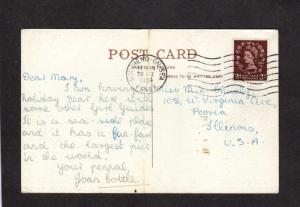 POST CARD
SOUTHEND-ON-SEA
1954
Dear Mary,
I am having a
holiday near here with
some other Girl Guides.
It is a sea-side place
and it has a fun-fair
and the largest pier
in the world.
Your penpal,
Joan Bottle.
Miss M.
108, W. Virginia Ave,
Peoria
Illinois,
U.S.A.